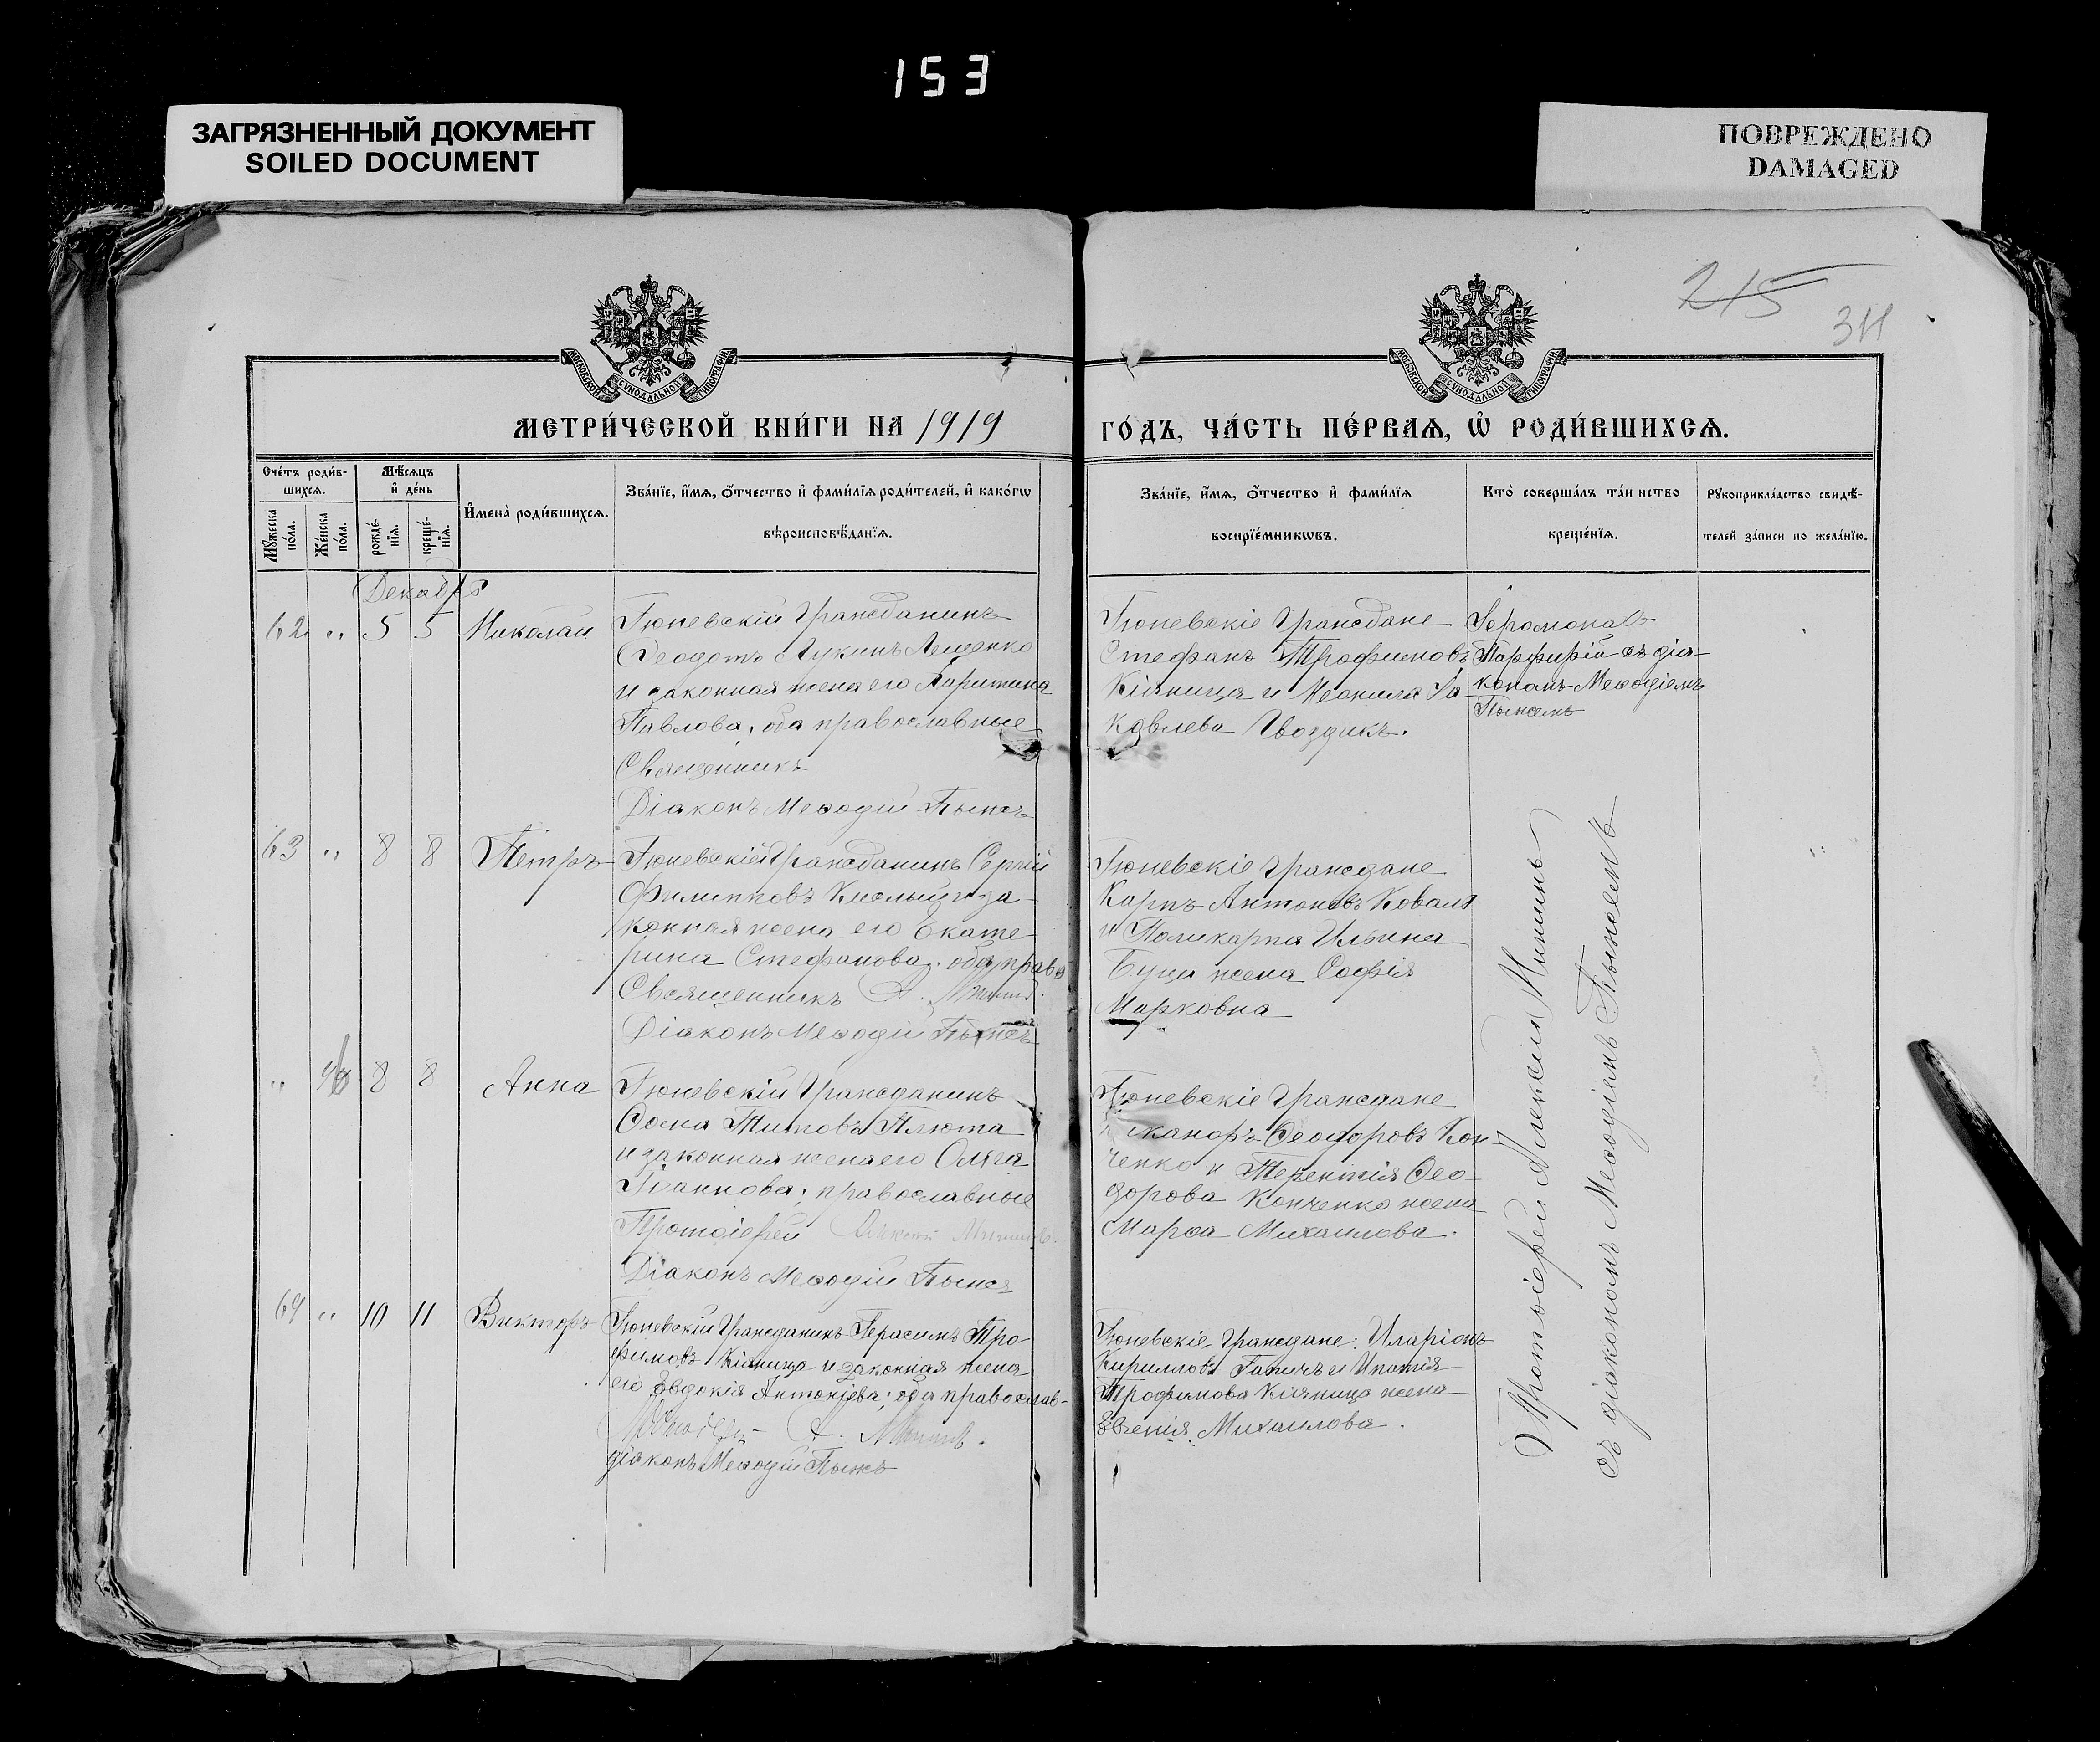 153
ЗАГРЯЗНЕННЫЙ ДОКУМЕНТ
SOILED DOCUMENT
ПОВРЕЖДЕНО
DAMAGED
215
311
МОСКОВСКОЙ СѴНОДАЛЬНОЙ ТИПОГРАФІИ
МОСКОВСКОЙ СѴНОДАЛЬНОЙ ТИПОГРАФІИ
МЕТРИ́ЧЕСКОЙ КНИ́ГИ НА 1919
ГО́ДЪ, ЧА́СТЬ ПЕ́РВАѦ, Ѡ҆ РОДИ́ВШИХСѦ.
Сче́тъ роди́в-
шихсѧ.
Мꙋ́жеска
по́ла.
Же́нска
по́ла.
Мѣ́сѧцъ
и҆ де́нь
рожде́-
нїѧ.
креще́-
нїѧ.
И҆мена̀ роди́вшихсѧ.
Зва́нїе, и҆́мѧ, ѻ҆́тчество и҆ фами́лїѧ роди́телей, и҆ како́гѡ
вѣроисповѣ́данїѧ.
Зва́нїе, и҆́мѧ, ѻ҆́тчество и҆ фами́лїѧ
воспрїе́мникѡвъ.
Кто̀ соверша́лъ та́инство
креще́нїѧ.
Рꙋкоприкла́дство свидѣ́-
телей за́писи по жела́нїю.
Декабрь
62 " 5 5 Николай
Гюневскій гражданинъ
Ѳеодотъ Лукинъ Лещенко
и законная жена его Харитина
Павлова, оба православные
Священникъ
Діаконъ Меѳодій Пыжъ
Гюневскіе граждане
Стефанъ Трофимовъ
Кіяница и Неонила Іа-
ковлева Гвоздикъ.
Іеромонахъ
Парфирій съ діа-
кономъ Меѳодіемъ
Пыжемъ
63 " 8 8 Петръ
Гюневскій гражданинъ Сергій
Филипповъ Кислый и за-
конная жена его Екате-
рина Стефанова, оба право
Священникъ А. Мининъ.
Діаконъ Меѳодій Пыжъ
Гюневскіе граждане
Карпъ Антоновъ Коваль
и Поликарпа Ильина
Буца жена Софія
Марковна
" 8 8 Анна
Гюневскій гражданинъ
Ѳома Титовъ Плюта
и законная жена его Ольга
Іоаннова, православные
Протоіерей Алексій Мининъ.
Діаконъ Меѳодій Пыжъ
Гюневскіе граждане
Ѳеодоровъ Кон-
ченко и Терентія Ѳео-
дорова Конченко жена
Марѳа Михаилова.
64 " 10 11 Викторъ
Гюневскій гражданинъ Герасимъ Тро-
фимовъ Кіяница и законная жена
его Евдокія Антоніева; оба православ-
Протоіерей А. Мининъ.
діаконъ Меѳодій Пыжъ
Гюневскіе граждане: Иларіонъ
Кирилловъ Гапичъ и Ипатія
Трофимова Кіяница жена
Евгенія Михаилова.
Протоіерей Алексій Мининъ
съ діакономъ Меѳодіемъ Пыжемъ